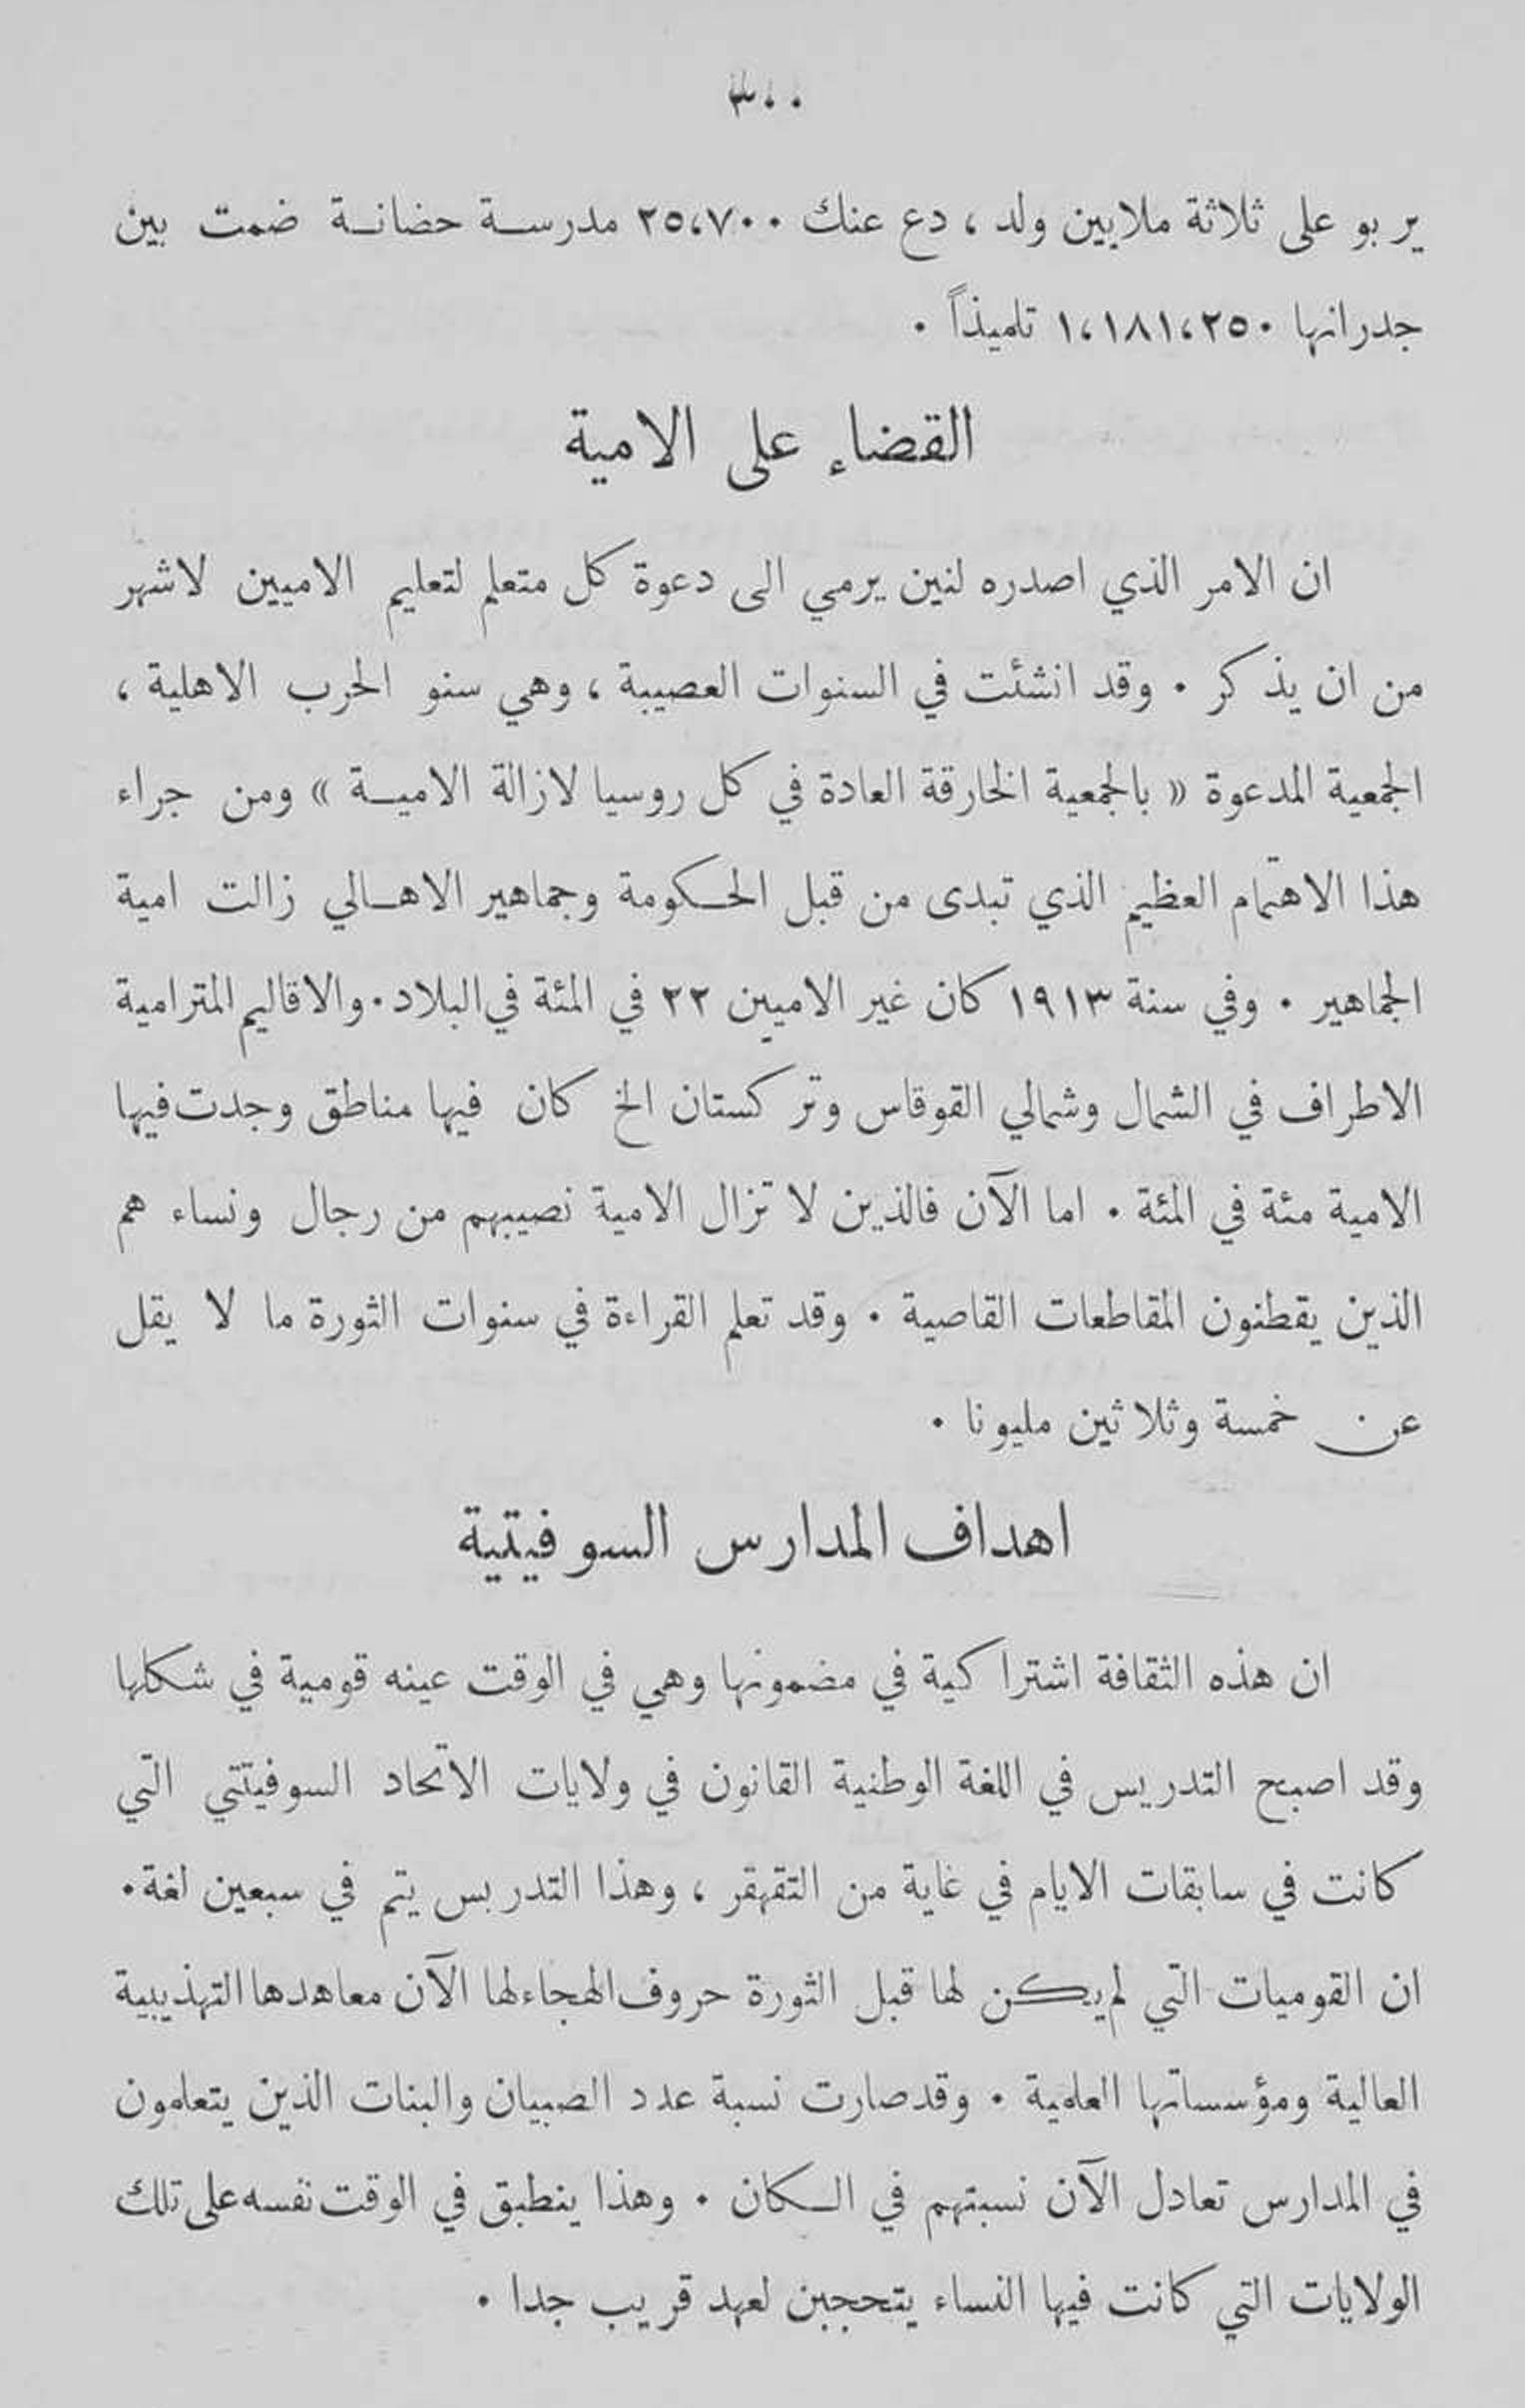 ٣٠٠
يربو على ثلاثة ملايين ولد ، دع عنك ٢٥،٧٠٠ مدرسة حضانة ضمت بين
جدرانها ١،١٨١،٢٥٠ تلميذاً .
القضاء على الامية
ان الامر الذي اصدره لنين يرمي الى دعوة كل متعلم لتعليم الاميين لاشهر
من ان يذكر . وقد انشئت في السنوات العصيبة ، وهي سنو الحرب الاهلية ،
الجمعية المدعوة « بالجمعية الخارقة العادة في كل روسيا لازالة الامية » ومن جراء
هذا الاهتمام العظيم الذي تبدى من قبل الحكومة وجماهير الاهالي زالت امية
الجماهير . وفي سنة ١٩١٣ كان غير الاميين ٢٢ في المئة في البلاد . والاقاليم المترامية
الاطراف في الشمال وشمالي القوقاس وتركستان الخ كان فيها مناطق وجدت فيها
الامية مئة في المئة . اما الآن فالذين لا تزال الامية نصيبهم من رجال ونساء هم
الذين يقطنون المقاطعات القاصية . وقد تعلم القراءة في سنوات الثورة ما لا يقل
عن خمسة وثلاثين مليونا .
اهداف المدارس السوفيتية
ان هذه الثقافة اشتراكية في مضمونها وهي في الوقت عينه قومية في شكلها
وقد اصبح التدريس في اللغة الوطنية القانون في ولايات الاتحاد السوفيتتي التي
كانت في سابقات الايام في غاية من التقهقر ، وهذا التدريس يتم في سبعين لغة .
ان القوميات التي لم يكن لها قبل الثورة حروف الهجاء لها الآن معاهدها التهذيبية
العالية ومؤسساتها العلمية . وقد صارت نسبة عدد الصبيان والبنات الذين يتعلمون
في المدارس تعادل الآن نسبتهم في السكان . وهذا ينطبق في الوقت نفسه على تلك
الولايات التي كانت فيها النساء يتحجبن لعهد قريب جدا .